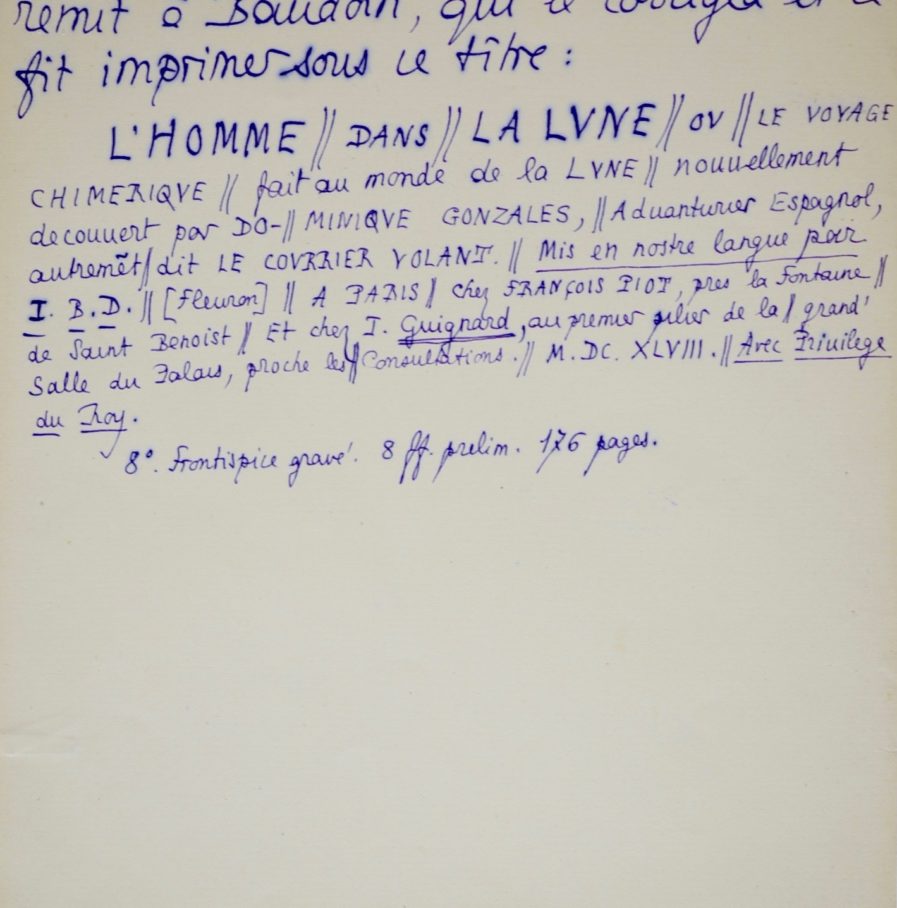 remit à Baudoin, qui le corrigea et le
fit imprimer sous ce titre :
L'HOMME // DANS // LA LVNE // OV // LE VOYAGE
CHIMERIQVE // fait au monde de la LVNE // nouuellement
decouuert par DO-// MINIQVE GONZALES, // Aduanturier Espagnol,
autremẽt // dit LE COVRRIER VOLANT. // Mis en nostre langue par
I. B. D. // [Fleuron] // A PARIS // chez FRANÇOIS PIOT, pres la Fontaine //
de Saint Benoist // Et chez I. Guignard, au premier pilier de la // grand'
Salle du Palais, proche les // Consultations. // M. DC. XLVIII. // Avec Priuilege
du Roy.
8°. Frontispice gravé. 8 ff. prelim. 176 pages.